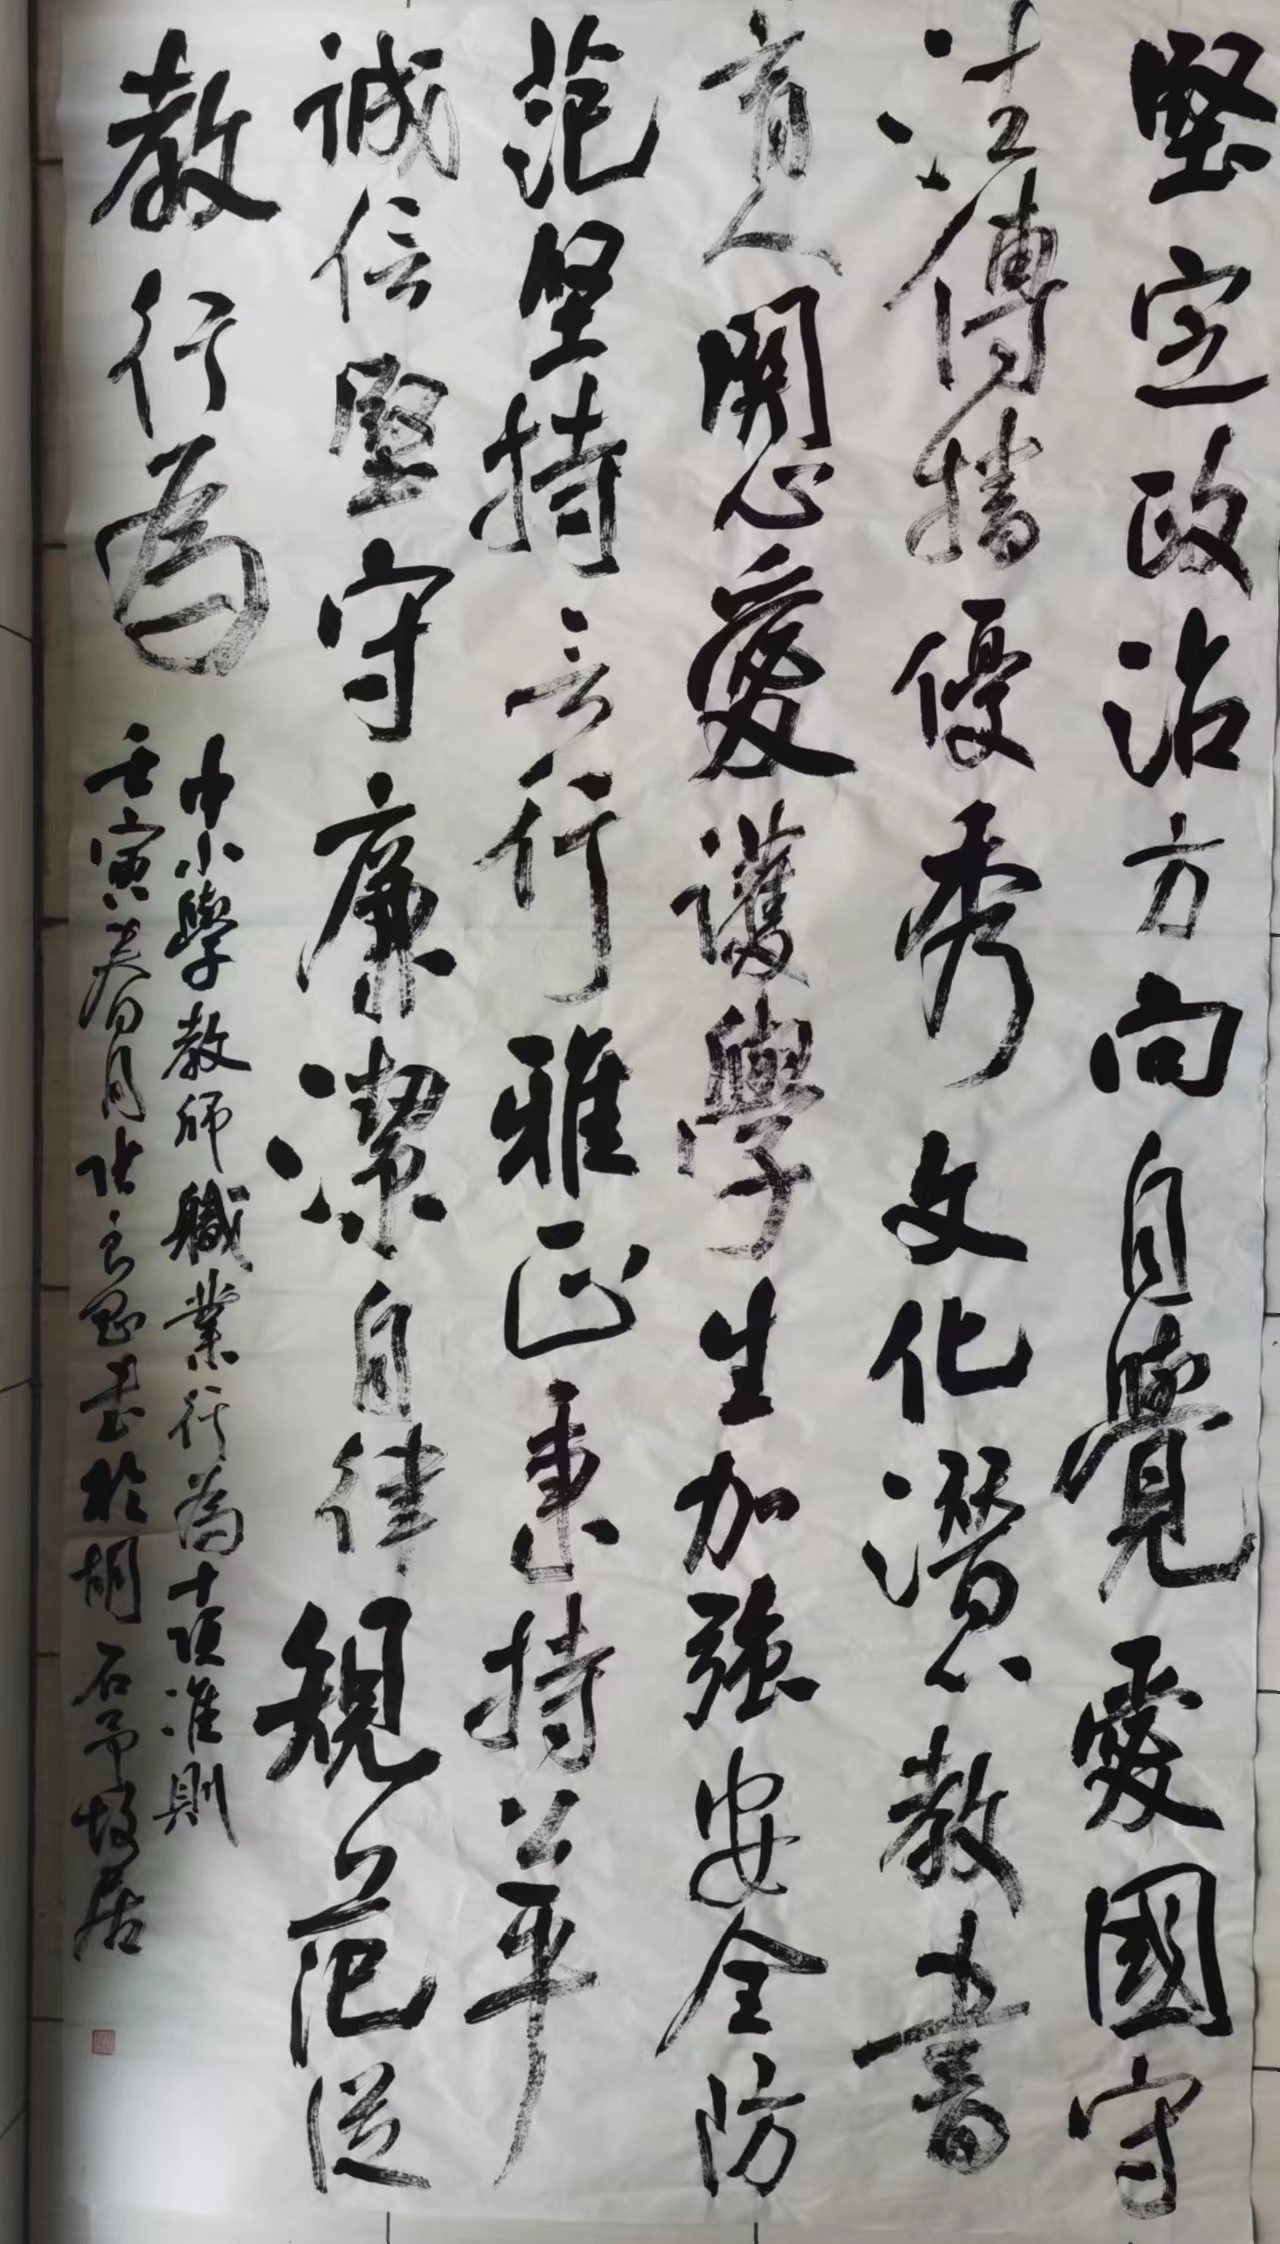 堅定政治方向自覺愛國守
法傳播優秀文化潛心教書
育人關心愛護學生加強安全防
范坚持言行雅正秉持公平
誠信堅守廉潔自律規范從
教行為
中小學教師職業行為十項准則
壬寅春月書於胡石予故居